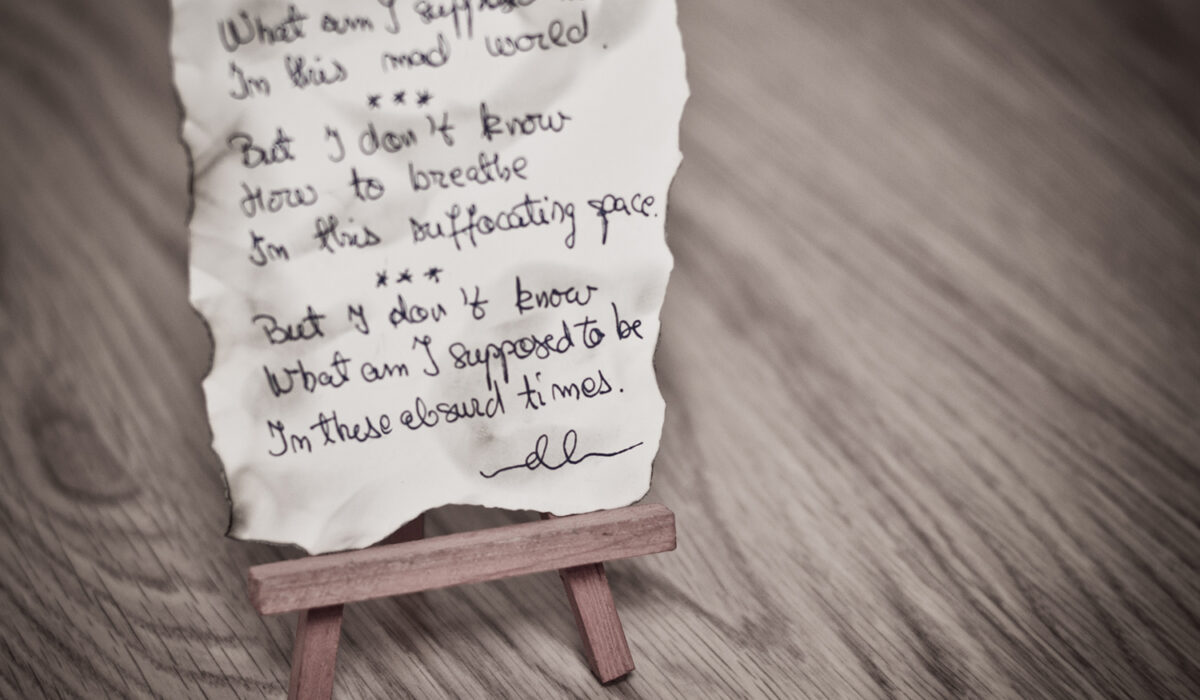 What am I suppose
In this mad world.
***
But I don't know
How to breathe
In this suffocating space.
***
But I don't know
What am I supposed to be
In these absurd times.